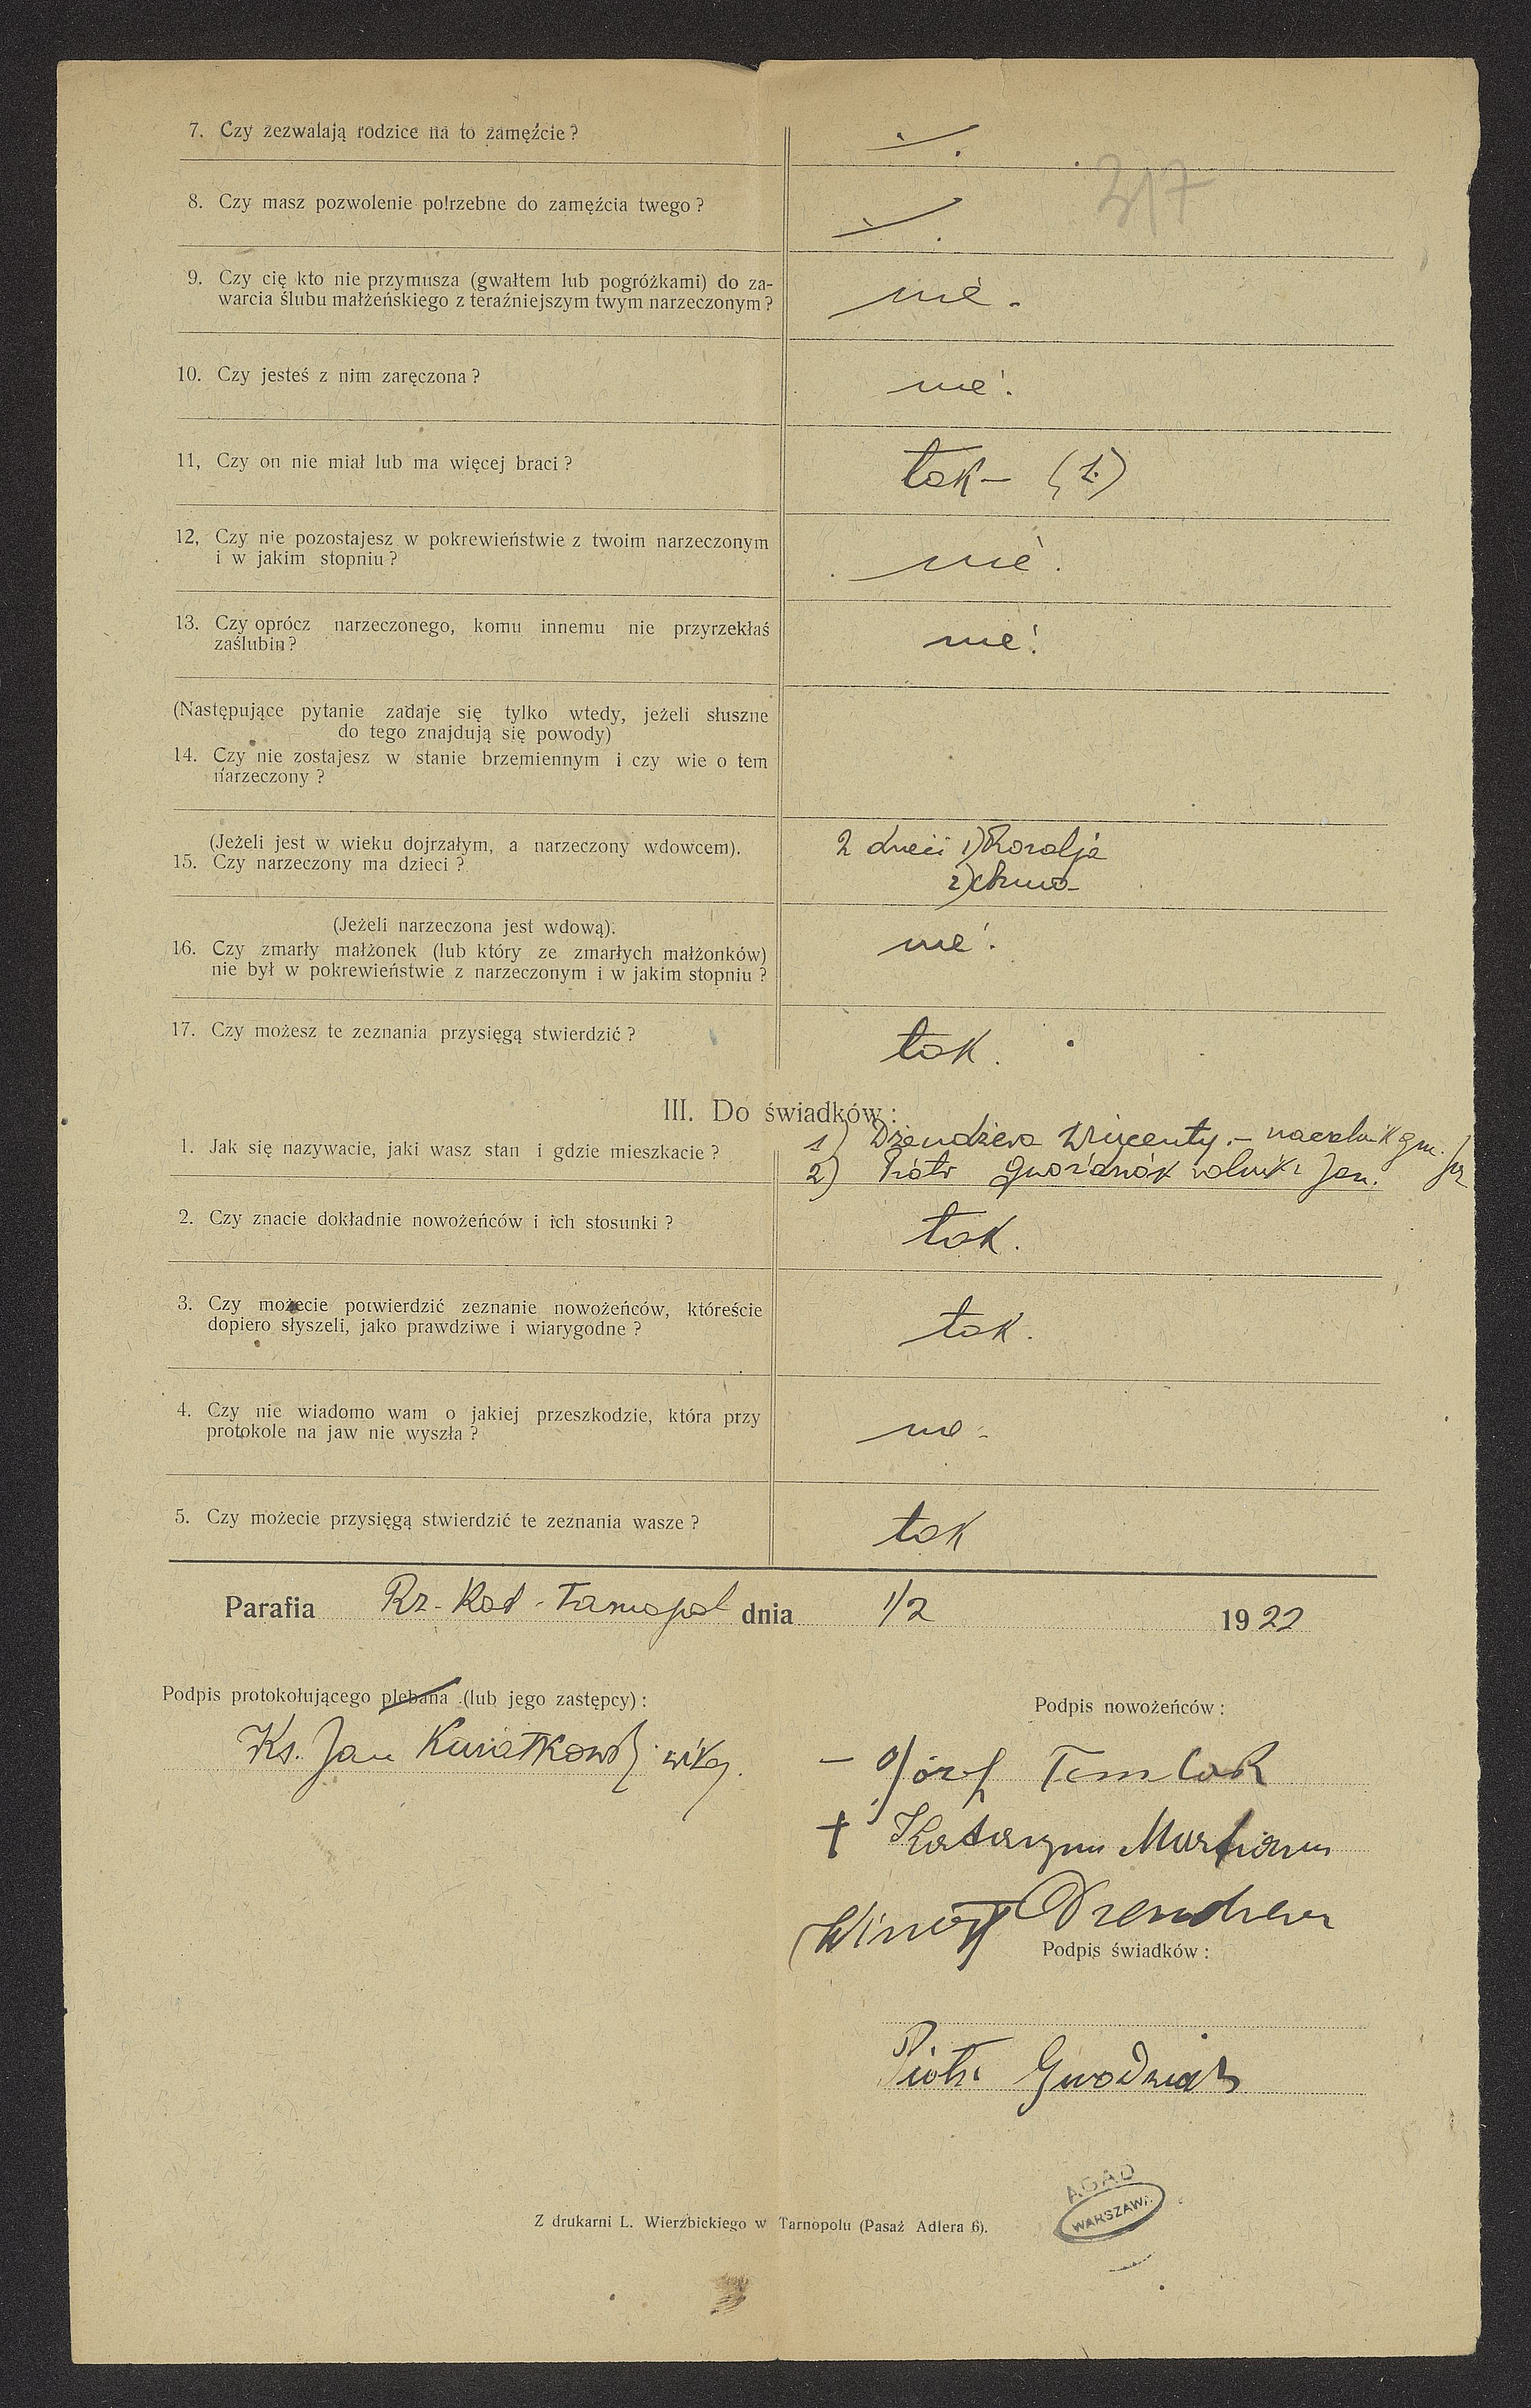 317
7. Czy zezwalają rodzice na to zamęźcie?
8. Czy masz pozwolenie potrzebne do zamęźcia twego?
9. Czy cię kto nie przymusza (gwałtem lub pogróżkami) do za-
warcia ślubu małżeńskiego z teraźniejszym twym narzeczonym? nie.
10. Czy jesteś z nim zaręczona? nie.
11, Czy on nie miał lub ma więcej braci? tak – (1.)
12, Czy nie pozostajesz w pokrewieństwie z twoim narzeczonym
i w jakim stopniu? nie.
13. Czy oprócz narzeczonego, komu innemu nie przyrzekłaś
zaślubin? nie.
(Następujące pytanie zadaje się tylko wtedy, jeżeli słuszne
do tego znajdują się powody)
14. Czy nie zostajesz w stanie brzemiennym i czy wie o tem
narzeczony?
(Jeżeli jest w wieku dojrzałym, a narzeczony wdowcem).
15. Czy narzeczony ma dzieci? 2 dzieci 1) Rozalja
2)
(Jeżeli narzeczona jest wdową).
16. Czy zmarły małżonek (lub który ze zmarłych małżonków)
nie był w pokrewieństwie z narzeczonym i w jakim stopniu? nie.
17. Czy możesz te zeznania przysięgą stwierdzić? tak.
III. Do świadków:
1. Jak się nazywacie, jaki wasz stan i gdzie mieszkacie? 1) Dżendżera Wincenty. – naczelnik gm.
2) Piotr Gwoździak rolnik z Jan.
2. Czy znacie dokładnie nowożeńców i ich stosunki? tak.
3. Czy możecie potwierdzić zeznanie nowożeńców, któreście
dopiero słyszeli, jako prawdziwe i wiarygodne? tak.
4. Czy nie wiadomo wam o jakiej przeszkodzie, która przy
protokole na jaw nie wyszła? nie.
5. Czy możecie przysięgą stwierdzić te zeznania wasze? tak
Parafia Rz-Kat-Tarnopol dnia 1/2 1922
Podpis protokołującego plebana (lub jego zastępcy):
Ks. Jan Kwiatkowski wik.
Podpis nowożeńców:
– Józef
† Katarzyna
Dzendzera
Podpis świadków:
Piotr Gwodziak
AGAD
WARSZAWA
Z drukarni L. Wierzbickiego w Tarnopolu (Pasaż Adlera 6).